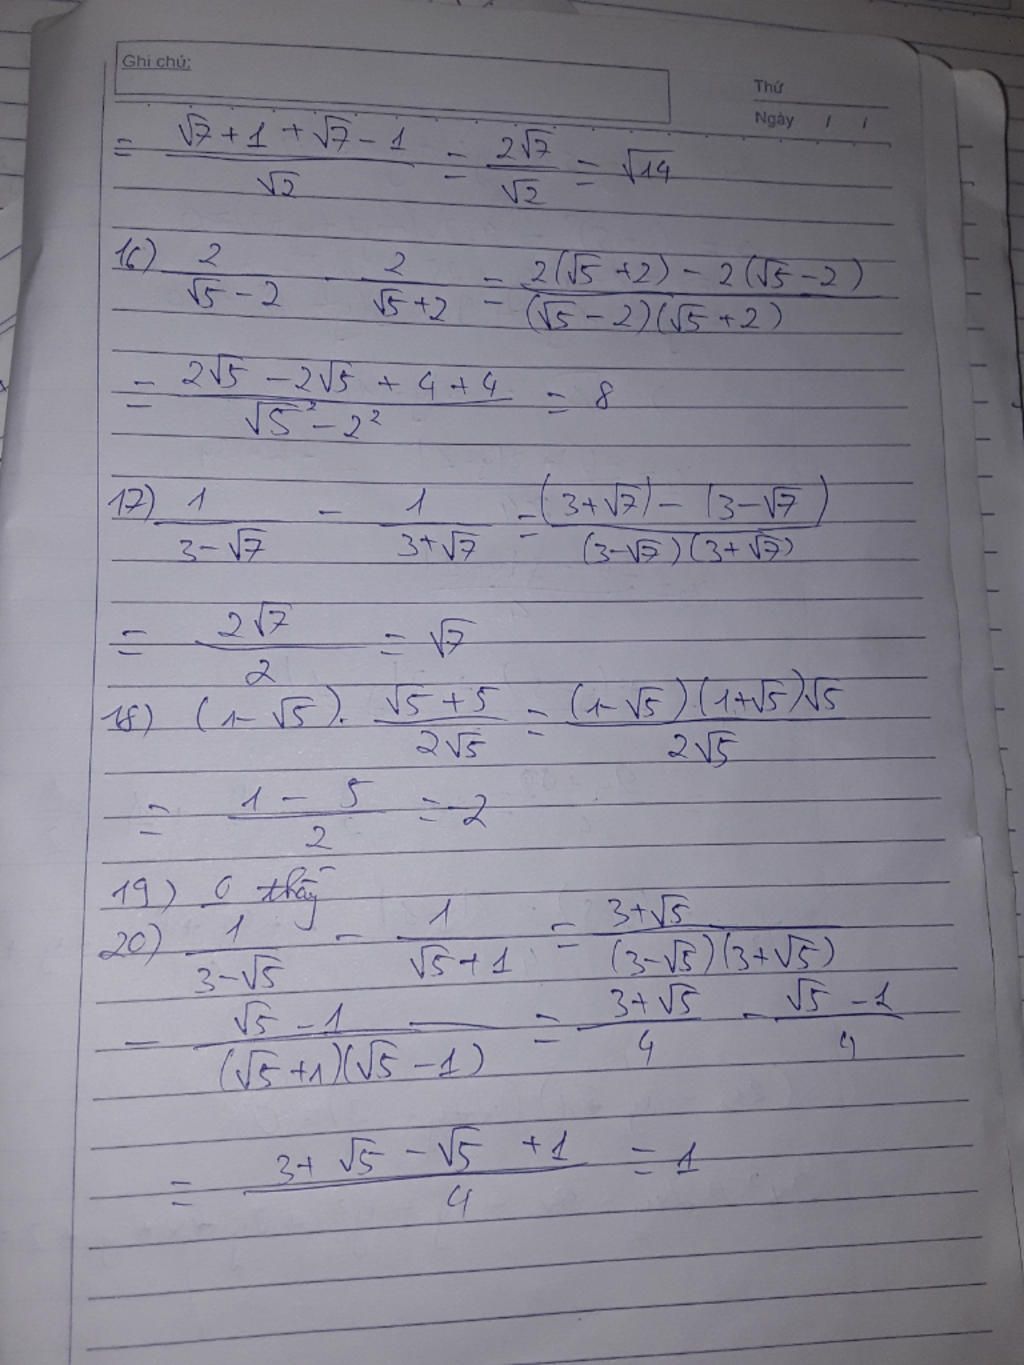 Ghi chú:
Thứ
Ngày / /
= (√7 + 1 + √7 - 1)/√2 = 2√7/√2 = √14
16) 2/(√5 - 2) - 2/(√5 + 2) = (2(√5 + 2) - 2(√5 - 2))/((√5 - 2)(√5 + 2))
= (2√5 - 2√5 + 4 + 4)/(√5² - 2²) = 8
17) 1/(3 - √7) - 1/(3 + √7) = ((3 + √7) - (3 - √7))/((3 - √7)(3 + √7))
= 2√7/2 = √7
18) (1 - √5). (√5 + 5)/(2√5) = ((1 - √5)(1 + √5)√5)/(2√5)
= (1 - 5)/2 = -2
19) 0 thấy
20) 1/(3 - √5) - 1/(√5 + 1) = (3 + √5)/((3 - √5)(3 + √5))
- (√5 - 1)/((√5 + 1)(√5 - 1)) = (3 + √5)/4 - (√5 - 1)/4
= (3 + √5 - √5 + 1)/4 = 1